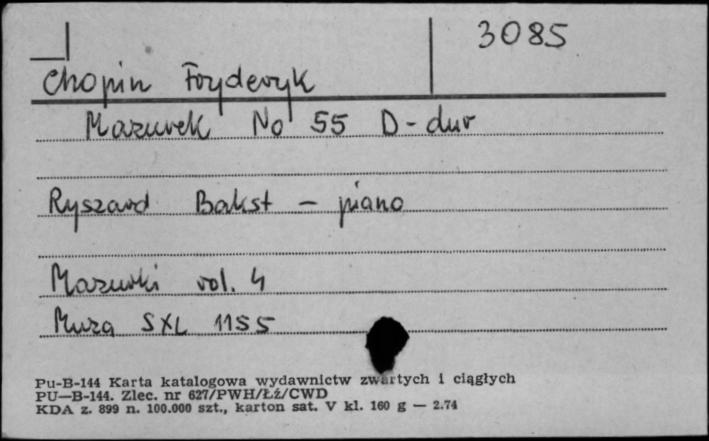 3085
Chopin Fryderyk
Mazurek No 55 D-dur
Ryszard Bakst - piano
Mazurki vol. 4
Muza SXL 1155
Pu-B-144 Karta katalogowa wydawnictw zwartych i ciągłych
PU—B-144. Zlec. nr 627/PWH/Łż/CWD
KDA z. 899 n. 100.000 szt., karton sat. V kl. 160 g — 2.74